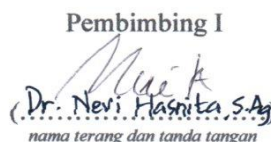 Pembimbing I
(Dr. Nevi Hasnita, S.Ag
nama terang dan tanda tangan